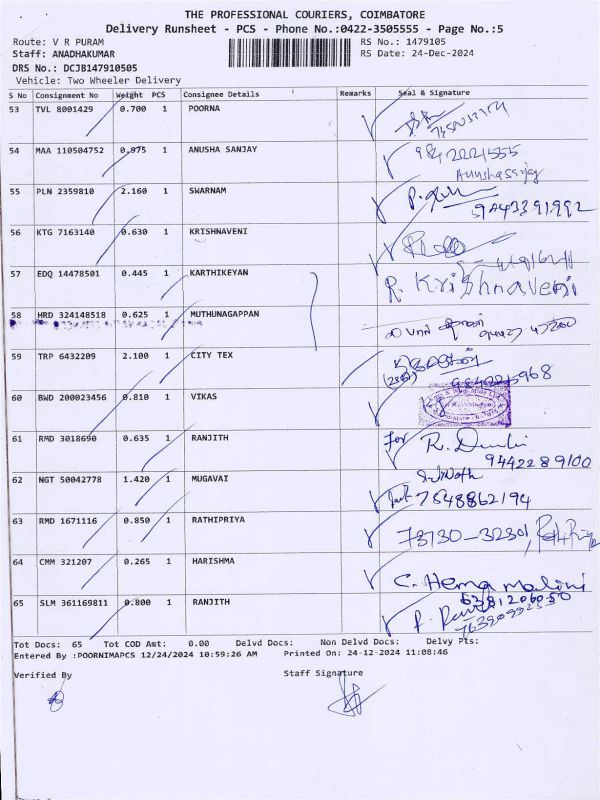 THE PROFESSIONAL COURIERS, COIMBATORE
Delivery Runsheet - PCS - Phone No.:0422-3505555 - Page No.:5
Route: V R PURAM RS No.: 1479105
Staff: ANADHAKUMAR RS Date: 24-Dec-2024
DRS No.: DCJB147910505
Vehicle: Two Wheeler Delivery
S No Consignment No Weight PCS Consignee Details Remarks Seal & Signature
53 TVL 8001429 0.700 1 POORNA
54 MAA 110504752 0.975 1 ANUSHA SANJAY
55 PLN 2359810 2.160 1 SWARNAM 9443391992
56 KTG 7163140 0.630 1 KRISHNAVENI
57 EDQ 14478501 0.445 1 KARTHIKEYAN R. Krishnaveni
58 HRD 324148518 0.625 1 MUTHUNAGAPPAN
59 TRP 6432209 2.100 1 CITY TEX
60 BWD 200023456 0.810 1 VIKAS
61 RMD 3018690 0.635 1 RANJITH for
9442289100
62 NGT 50042778 1.420 1 MUGAVAI
7548862194
63 RMD 1671116 0.850 1 RATHIPRIYA 73730-32301,
64 CMM 321207 0.265 1 HARISHMA C. Hema malini
65 SLM 361169811 0.800 1 RANJITH
Tot Docs: 65 Tot COD Amt: 0.00 Delvd Docs: Non Delvd Docs: Delvy Pts:
Entered By :POORNIMAPCS 12/24/2024 10:59:26 AM Printed On: 24-12-2024 11:08:46
Verified By Staff Signature